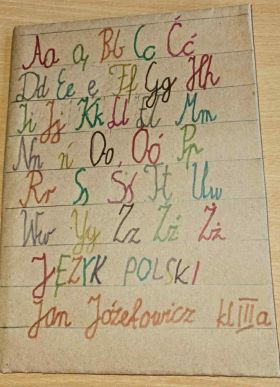 Aa ą Bb Cc Ćć
Dd Ee ę Ff Gg Hh
Ii Jj Kk Ll Łł Mm
Nn ń Oo, Óó Pp
Rr Ss Śś Tt Uu
Ww Yy Zz Źź Żż
JĘZYK POLSKI
Jan Józefowicz kl III a